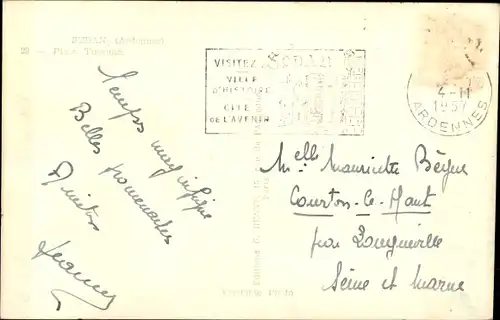 SEDAN (Ardennes)
29 — Place Turenne
VISITEZ SEDAN
VILLE
D'HISTOIRE
CITÉ
DE L'AVENIR
4-11
1957
ARDENNES
Temps magnifique
Belles promenades
Amitiés
Melle Mauricette Bègue
Courton-le-Haut
par Longueville
Seine et Marne